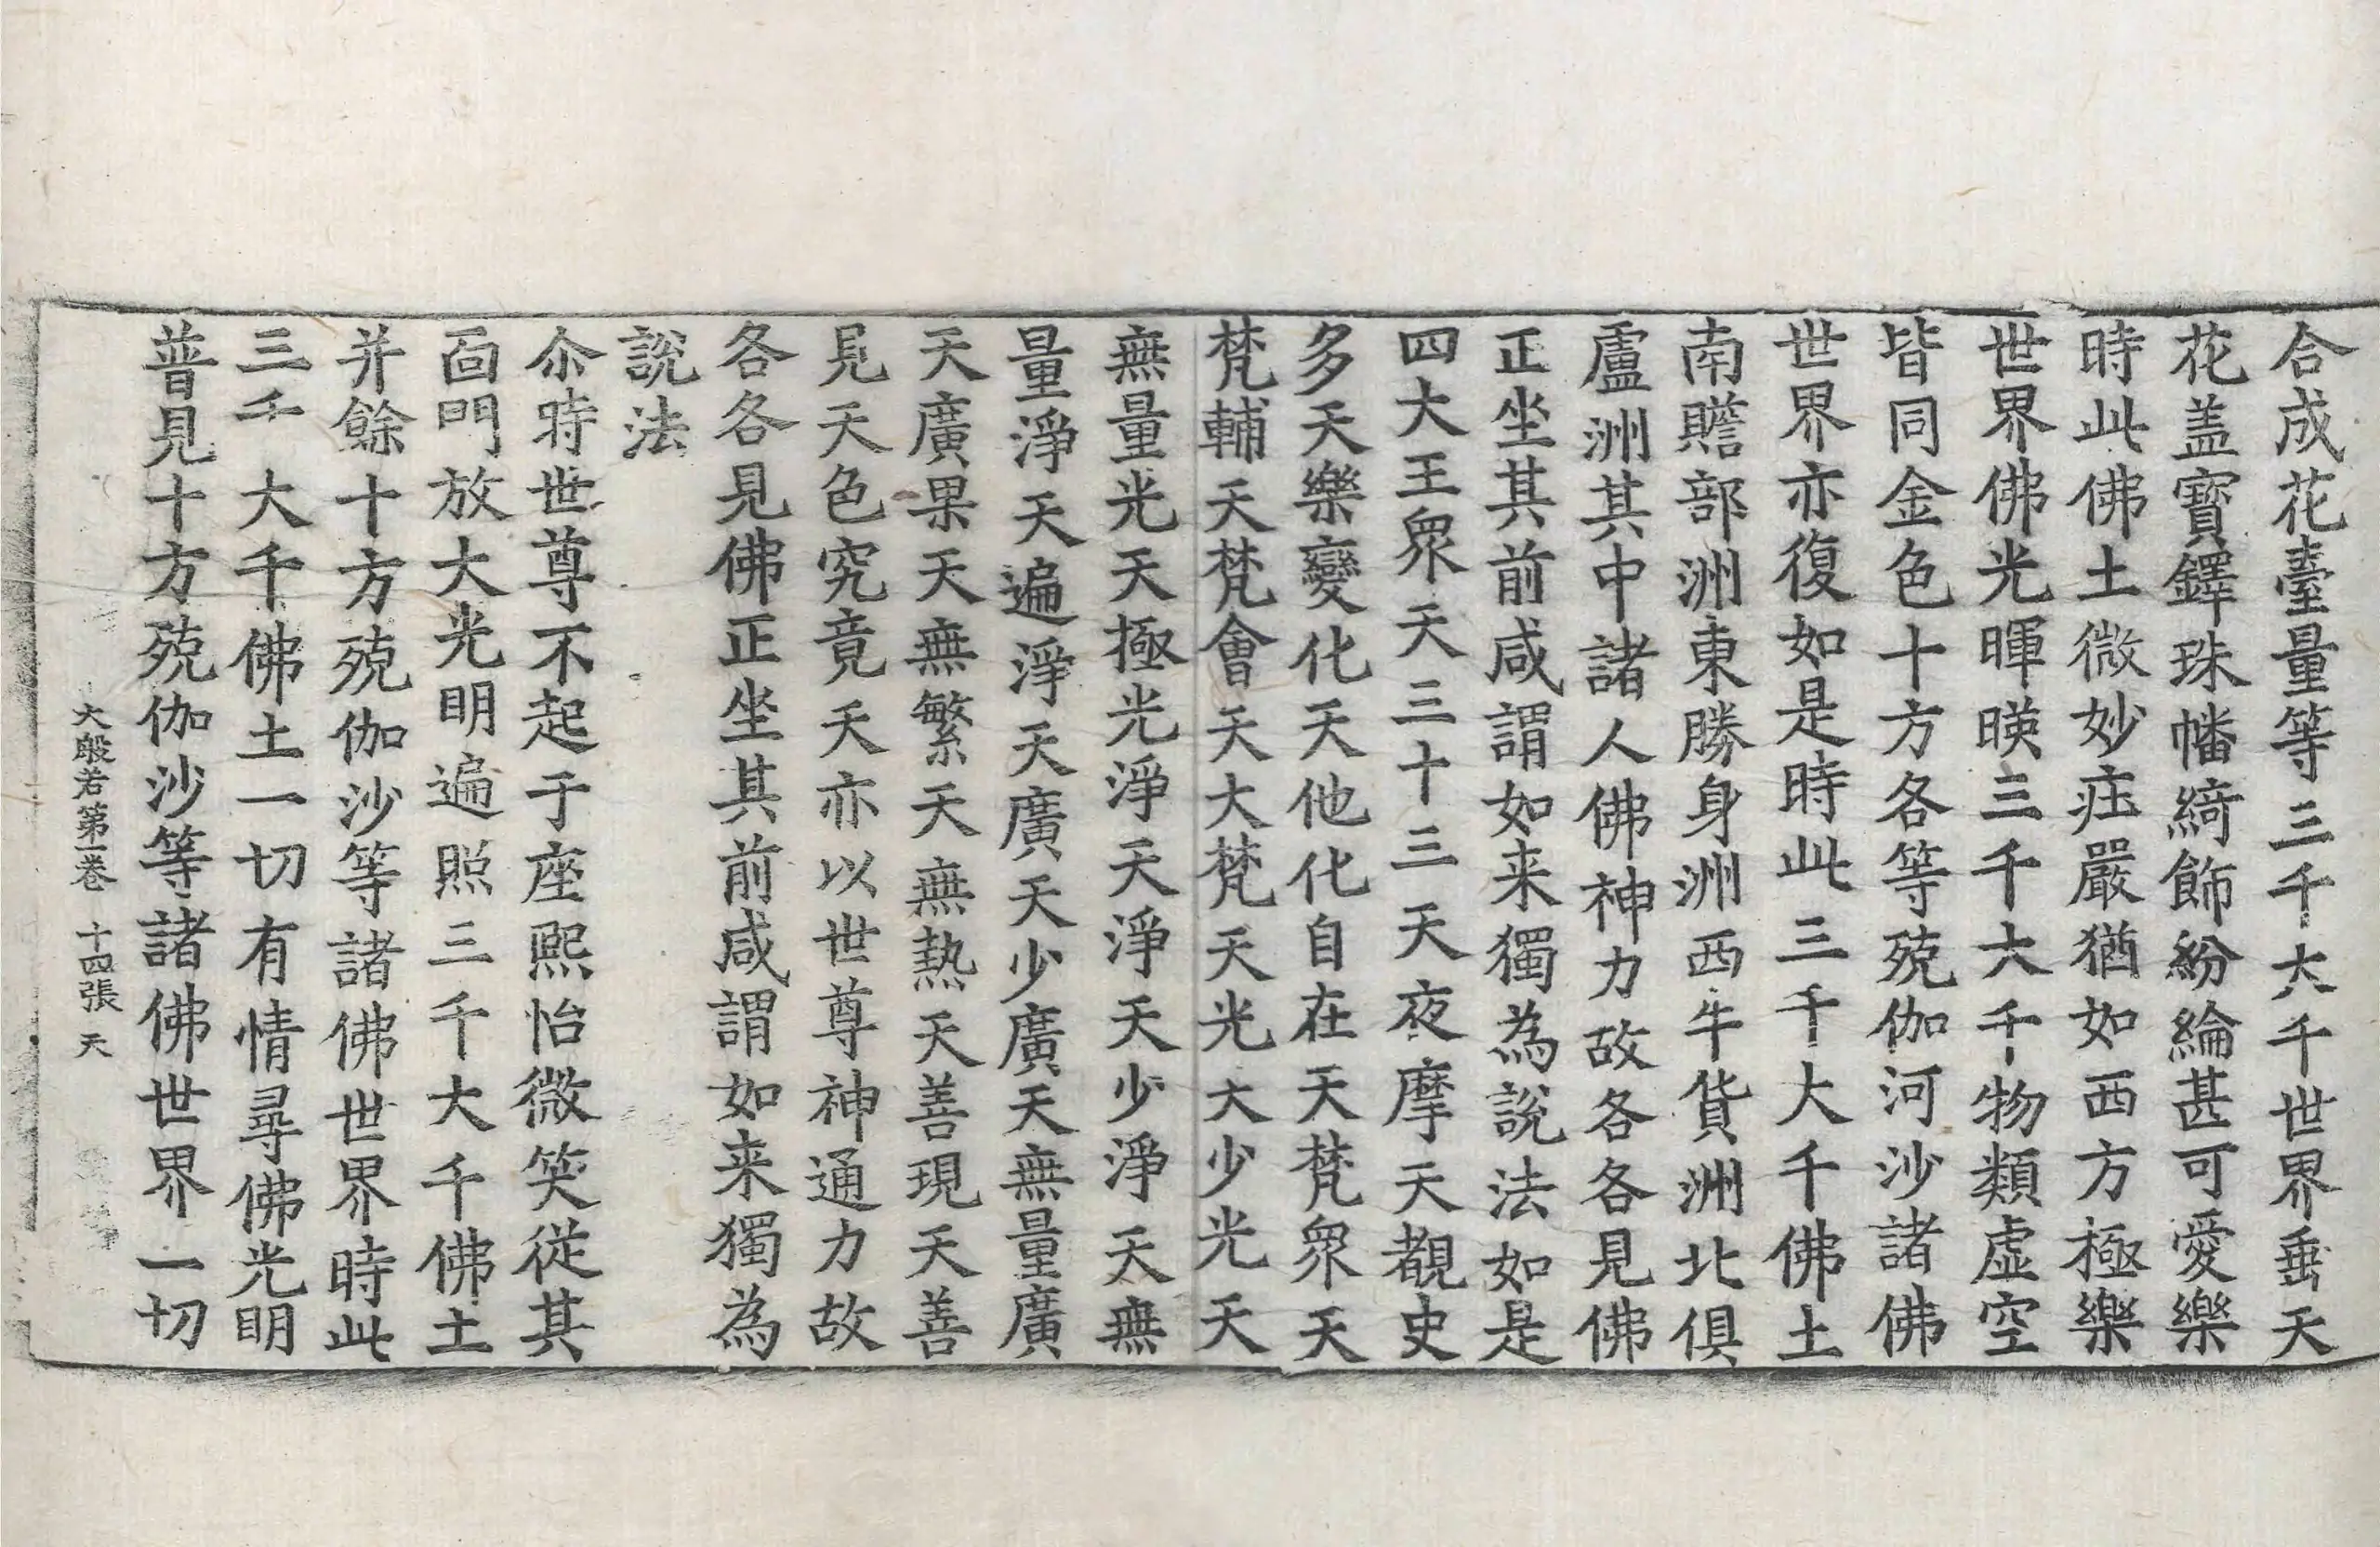 合成花臺量等三千大千世界垂天
花盖寶鐸珠幡綺飾紛綸甚可愛樂
時此佛土微妙莊嚴猶如西方極樂
世界佛光暉暎三千大千物類虚空
皆同金色十方各等殑伽河沙諸佛
世界亦復如是時此三千大千佛土
南贍部洲東勝身洲西牛貨洲北俱
盧洲其中諸人佛神力故各各見佛
正坐其前咸謂如来獨為說法如是
四大王衆天三十三天夜摩天覩史
多天樂變化天他化自在天梵衆天
梵輔天梵會天大梵天光大少光天
無量光天極光淨天淨天少淨天無
量淨天遍淨天廣天少廣天無量廣
天廣果天無繁天無熱天善現天善
見天色究竟天亦以世尊神通力故
各各見佛正坐其前咸謂如来獨為
說法
尒時世尊不起于座熙怡微笑從其
面門放大光明遍照三千大千佛土
并餘十方殑伽沙等諸佛世界時此
三千大千佛土一切有情尋佛光明
普見十方殑伽沙等諸佛世界一切
大般若第一卷 十四張 天